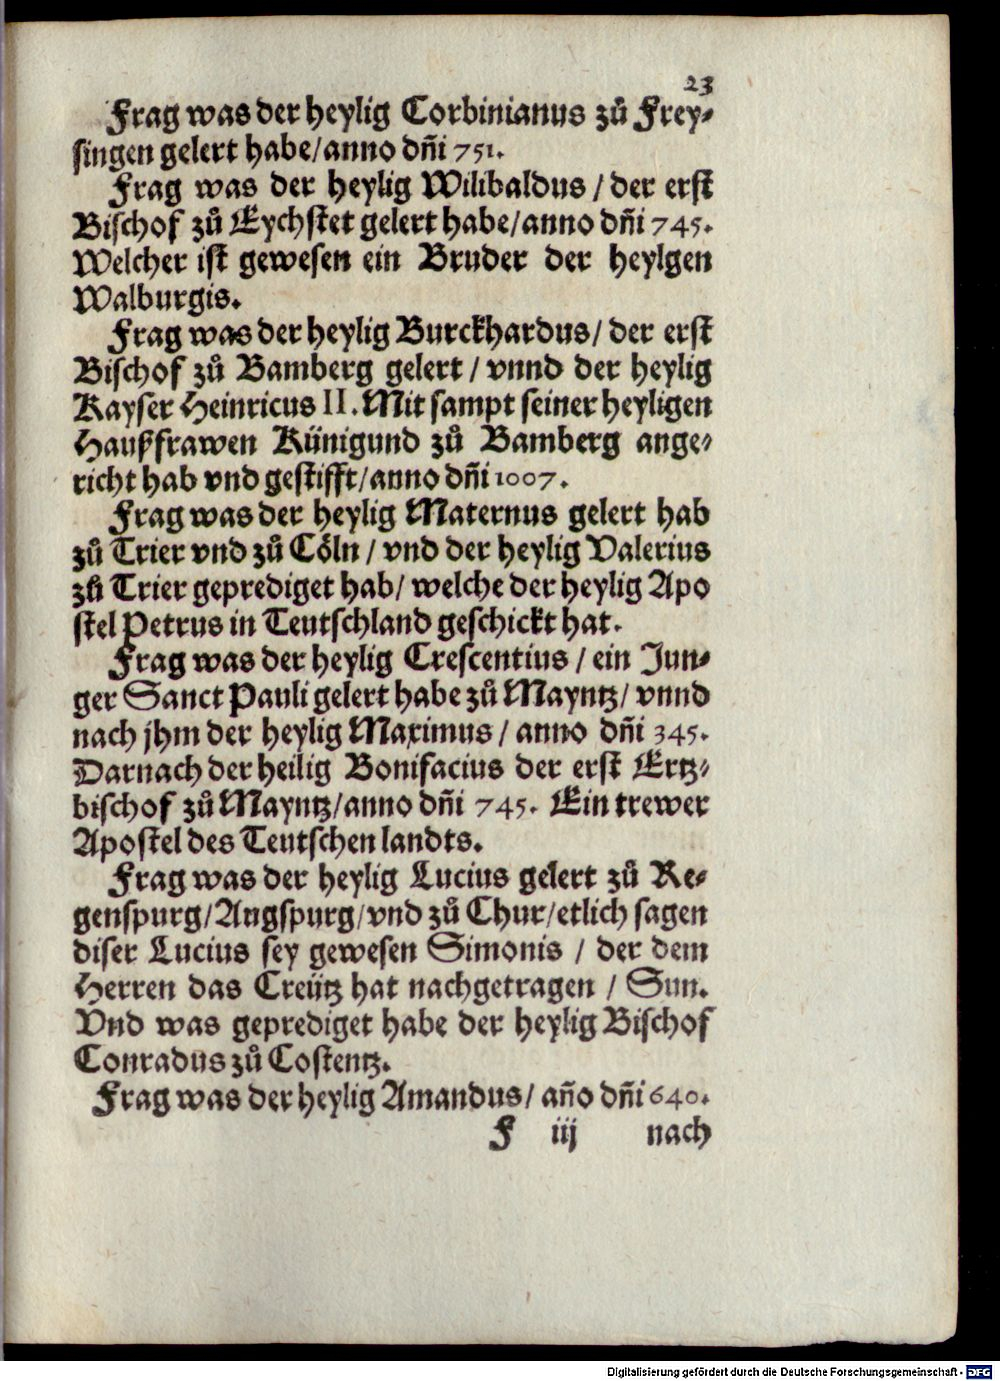 23
Frag was der heylig Corbinianus zů Frey-
singen gelert habe/anno dñi 751.
Frag was der heylig Wilibaldus / der erst
Bischof zů Eychstet gelert habe/anno dñi 745.
Welcher ist gewesen ein Bruder der heylgen
Walburgis.
Frag was der heylig Burckhardus/ der erst
Bischof zů Bamberg gelert / vnnd der heylig
Kayser Heinricus II. Mit sampt seiner heyligen
Haußfrawen Künigund zů Bamberg ange-
richt hab vnd gestifft/anno dñi 1007.
Frag was der heylig Maternus gelert hab
zů Trier vnd zů Cöln / vnd der heylig Valerius
zů Trier geprediget hab/ welche der heylig Apo
stel Petrus in Teutschland geschickt hat.
Frag was der heylig Crescentius / ein Jun-
ger Sanct Pauli gelert habe zů Mayntz/ vnnd
nach jhm der heylig Maximus / anno dñi 345.
Darnach der heilig Bonifacius der erst Ertz-
bischof zů Mayntz/anno dñi 745. Ein trewer
Apostel des Teutschen landts.
Frag was der heylig Lucius gelert zů Re-
genspurg/Augspurg/vnd zů Chur/etlich sagen
diser Lucius sey gewesen Simonis / der dem
Herren das Creütz hat nachgetragen / Sun.
Vnd was geprediget habe der heylig Bischof
Conradus zů Costentz.
Frag was der heylig Amandus/ año dñi 640.
F iij nach
Digitalisierung gefördert durch die Deutsche Forschungsgemeinschaft - DFG